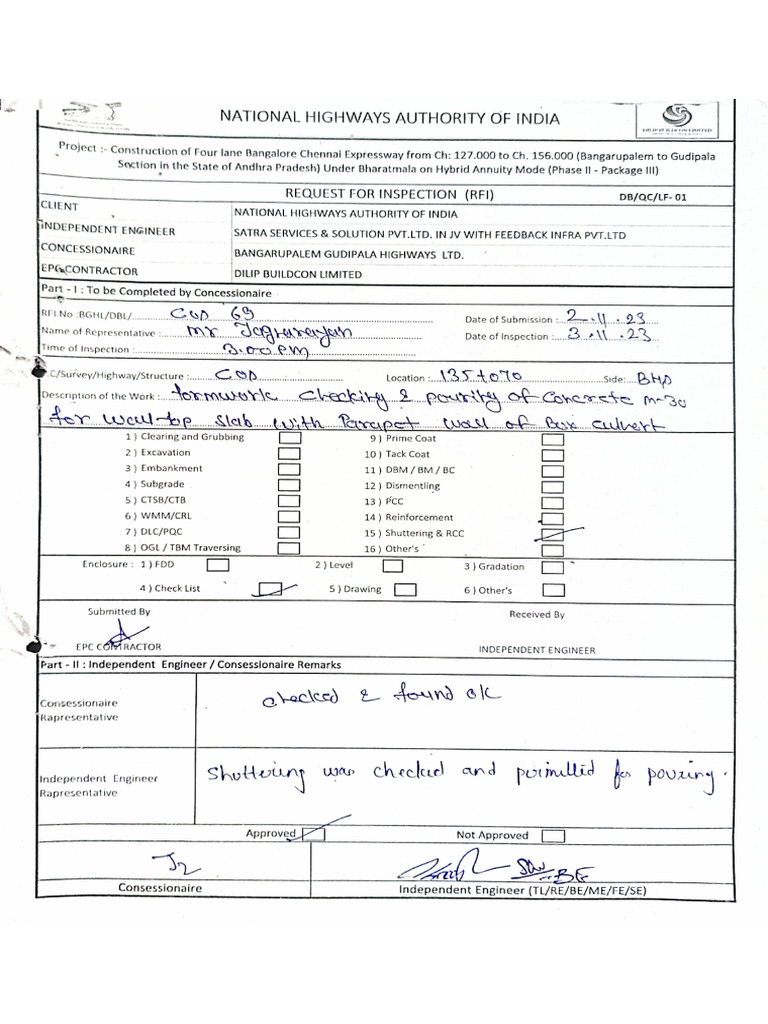 NATIONAL HIGHWAYS AUTHORITY OF INDIA
DILIP BUILDCON LIMITED
Project :- Construction of Four lane Bangalore Chennai Expressway from Ch: 127.000 to Ch. 156.000 (Bangarupalem to Gudipala
Section in the State of Andhra Pradesh) Under Bharatmala on Hybrid Annuity Mode (Phase II - Package III)
REQUEST FOR INSPECTION (RFI) DB/QC/LF- 01
CLIENT NATIONAL HIGHWAYS AUTHORITY OF INDIA
INDEPENDENT ENGINEER SATRA SERVICES & SOLUTION PVT.LTD. IN JV WITH FEEDBACK INFRA PVT.LTD
CONCESSIONAIRE BANGARUPALEM GUDIPALA HIGHWAYS LTD.
EPC CONTRACTOR DILIP BUILDCON LIMITED
Part - I : To be Completed by Concessionaire
RFI.No :BGHL/DBL/ 69 Date of Submission : 2.11.23
Name of Representative : mr Date of Inspection : 3.11.23
Time of Inspection : 3.00 P.M
C/Survey/Highway/Structure : Location : 135+070 Side: BHS
Description of the Work : formwork checking & pouring of Concrete m-30
for wall-top slab with Parapet wall of Box culvert
1 ) Clearing and Grubbing 9 ) Prime Coat
2 ) Excavation 10 ) Tack Coat
3 ) Embankment 11 ) DBM / BM / BC
4 ) Subgrade 12 ) Dismentling
5 ) CTSB/CTB 13 ) PCC
6 ) WMM/CRL 14 ) Reinforcement
7 ) DLC/PQC 15 ) Shuttering & RCC
8 ) OGL / TBM Traversing 16 ) Other's
Enclosure : 1 ) FDD 2 ) Level 3 ) Gradation
4 ) Check List 5 ) Drawing 6 ) Other's
Submitted By Received By
EPC CONTRACTOR INDEPENDENT ENGINEER
Part - II : Independent Engineer / Consessionaire Remarks
Consessionaire
Rapresentative
checked & found ok
Independent Engineer
Rapresentative
Shuttering was checked and permitted for pouring.
Approved Not Approved
Consessionaire Independent Engineer (TL/RE/BE/ME/FE/SE)